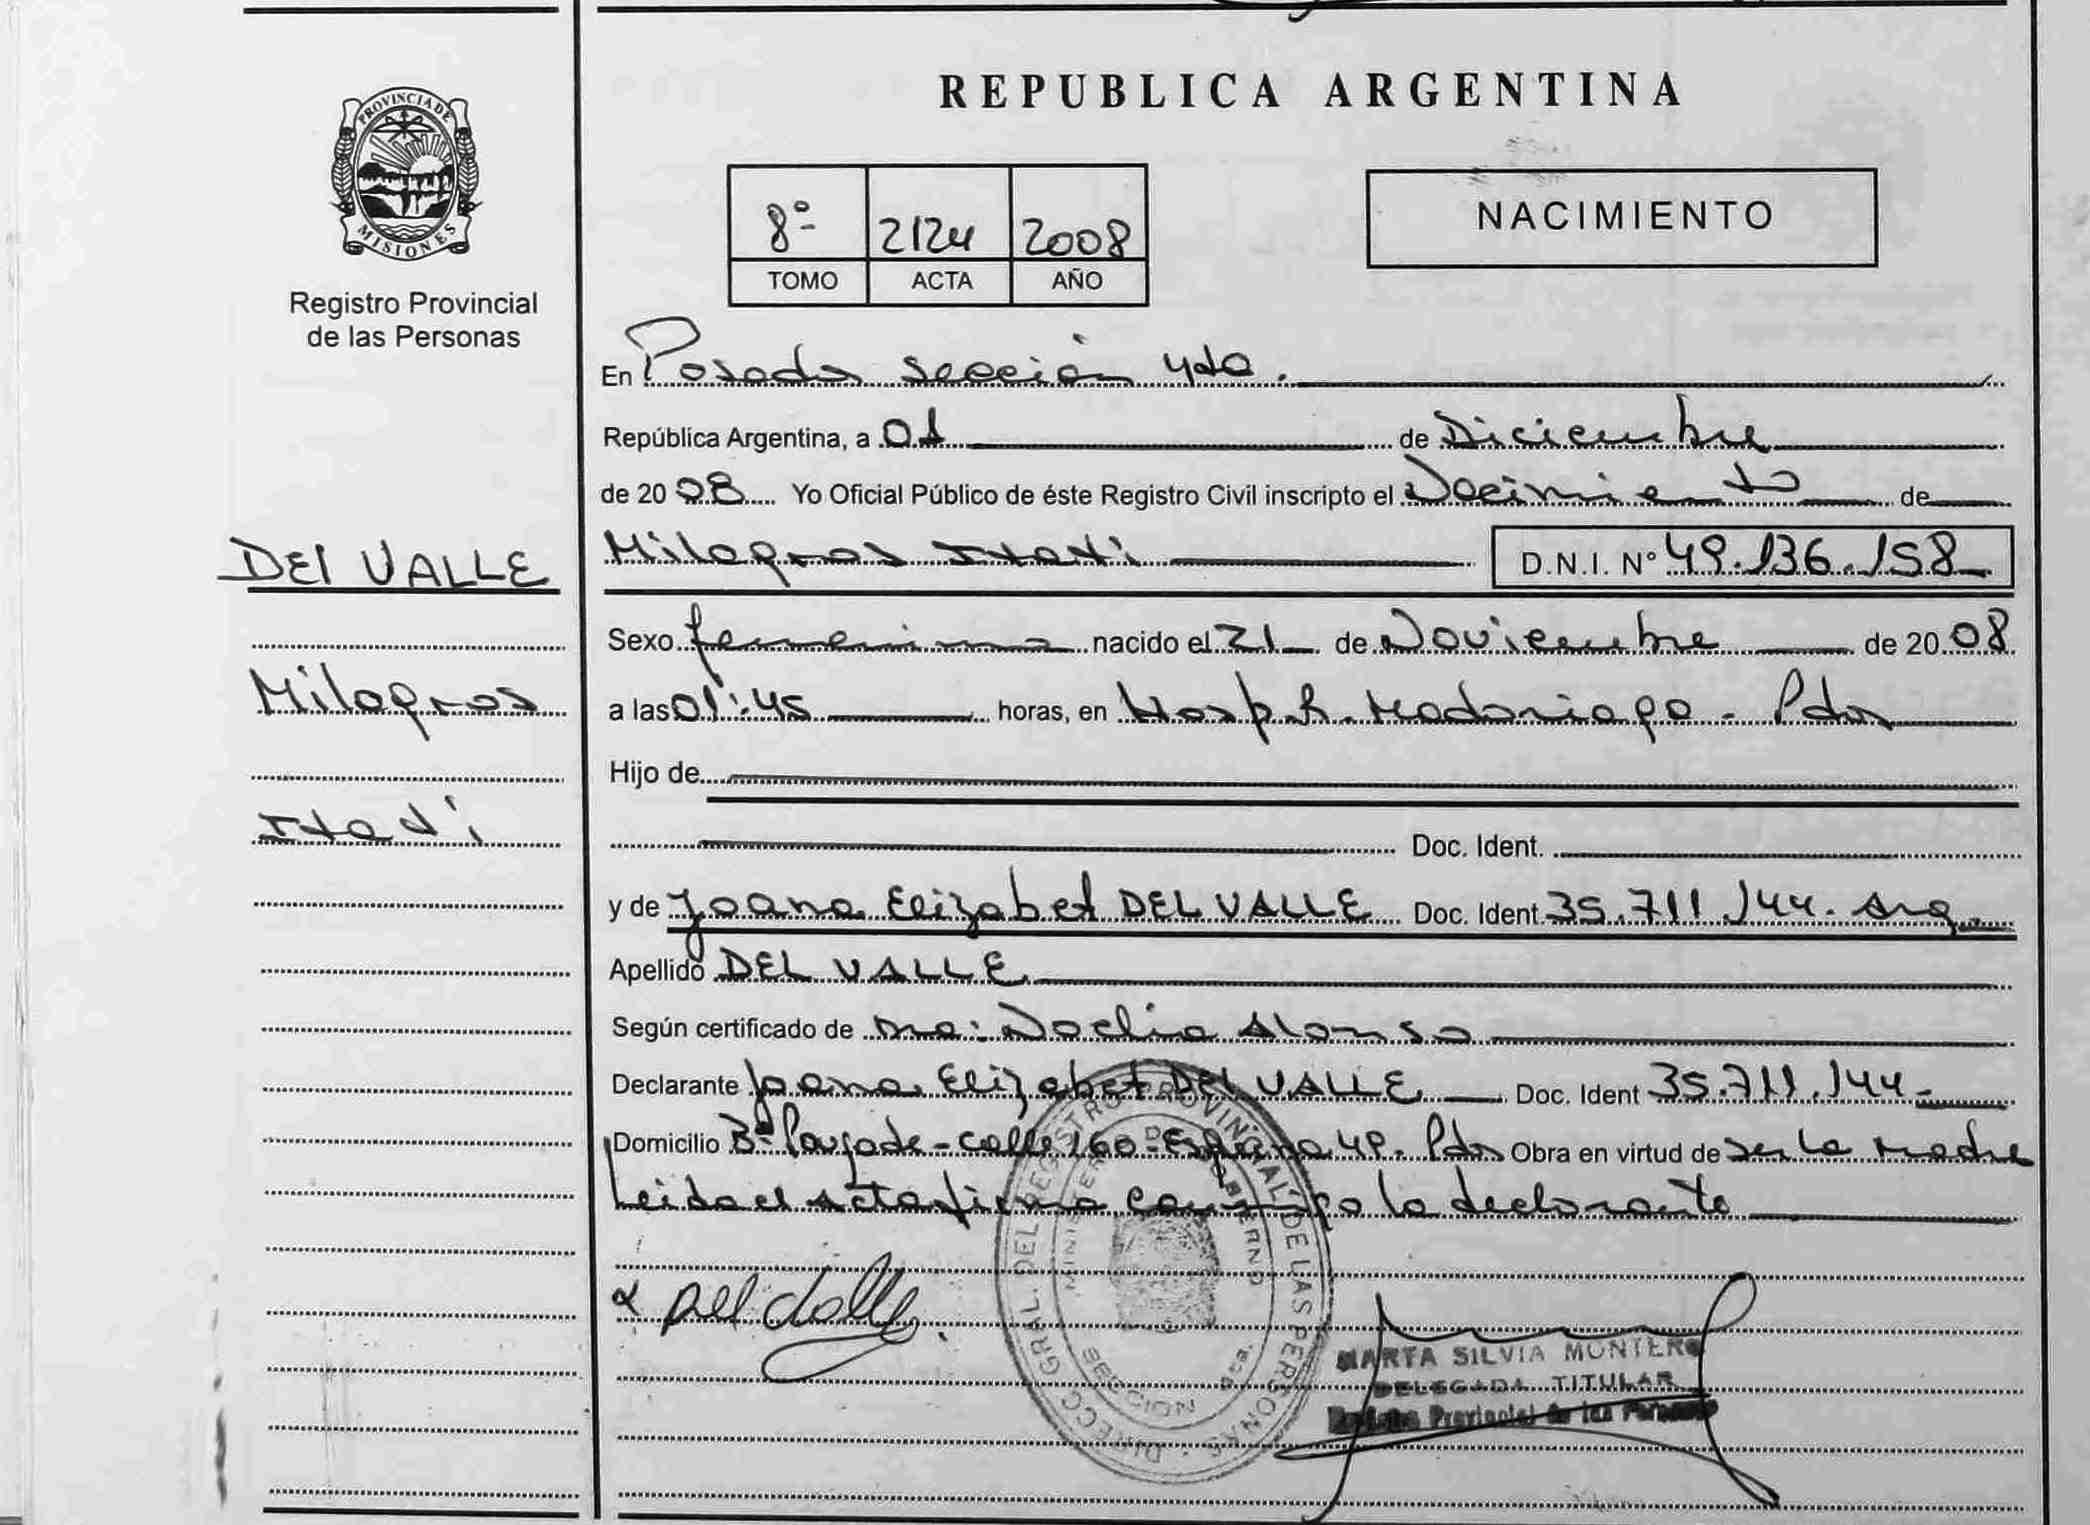 REPUBLICA ARGENTINA
PROVINCIA DE MISIONES
Registro Provincial
de las Personas
8º 2124 2008
TOMO ACTA AÑO
NACIMIENTO
En Posadas sección 4ta.
República Argentina, a 01 de Diciembre
de 2008 Yo Oficial Público de éste Registro Civil inscripto el Nacimiento de
DEl VALLE
Milagros Itatí
D.N.I. Nº 49.136.158
Sexo femenino nacido el 21 de Noviembre de 2008
Milagros
a las 01:45 horas, en Hosp. R. Madariaga - Pdas
Hijo de
Itatí
Doc. Ident.
y de Joana Elizabet DEL VALLE Doc. Ident. 35.711.144. Arg.
Apellido DEL VALLE
Según certificado de Noelia Alonso
Declarante Joana Elizabet DEl VALLE Doc. Ident 35.711.144
Domicilio Bº calle 160 - España 49. Pdas Obra en virtud de ser la madre
Leida el acta firma conmigo la declarante
Del Valle
DIRECC. GRAL. DEL REGISTRO PROVINCIAL DE LAS PERSONAS
MINISTERIO DE GOBIERNO
SECCION
MARTA SILVIA MONTERO
DELEGADA TITULAR
Registro Provincial de las Personas